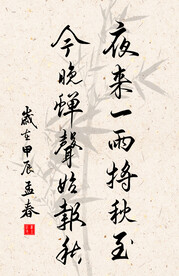 夜来一雨将秋至
今晚蝉聲始報秋
歲在甲辰孟春